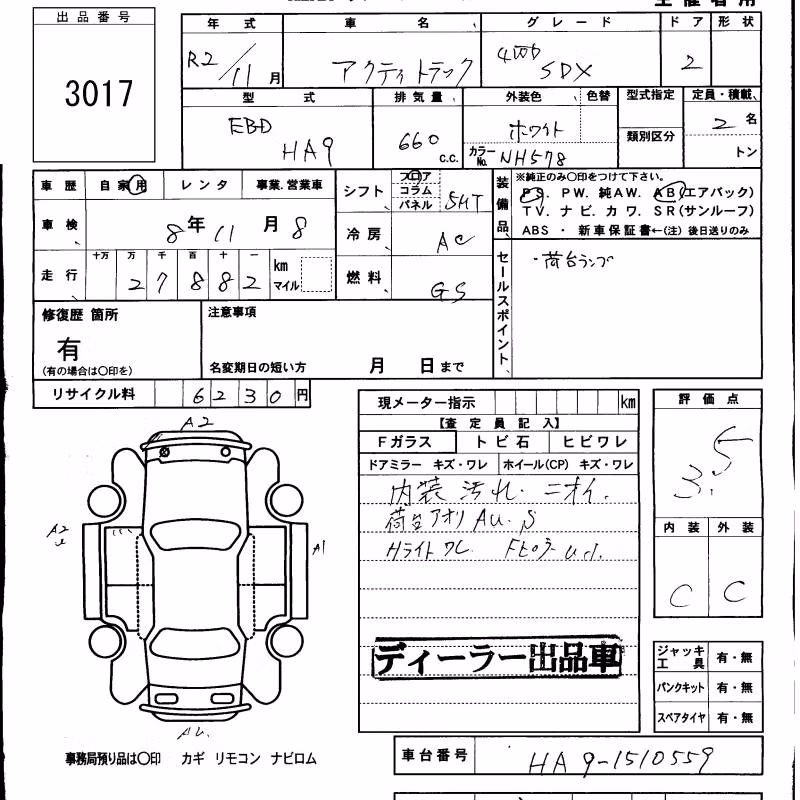 出品番号
3017
年式 車名 グレード ドア 形状
R2/11月 アクティトラック 4WD SDX 2
型式 排気量 外装色 色替 型式指定 定員・積載
EBD HA9 660 c.c. ホワイト 類別区分 2名
カラーNo. NH578 トン
車歴 自家用 レンタ 事業.営業車
車検 8年11月8
走行 十万 万 千 百 十 一
27882 km マイル
シフト フロア コラム パネル 5MT
冷房 AC
燃料 GS
装備品 ※純正のみ〇印をつけて下さい。
PS. PW. 純AW. AB(エアバック)
TV. ナビ. カワ. SR(サンルーフ)
ABS ・ 新車保証書←(注) 後日送りのみ
セールスポイント
・荷台ランプ
修復歴 箇所
有
(有の場合は〇印を)
注意事項
名変期日の短い方 月 日まで
リサイクル料 6230円
A2
A2
A1
現メーター指示 km
【査定員記入】
Fガラス トビ石 ヒビワレ
ドアミラー キズ・ワレ ホイール(CP) キズ・ワレ
内装 汚れ. ニオイ.
荷台アオリ AU. S
Hライト ワレ Fピラー
ディーラー出品車
評価点
3.5
内装 外装
C C
ジャッキ 工具 有・無
パンクキット 有・無
スペアタイヤ 有・無
事務局預り品は〇印 カギ リモコン ナビロム
車台番号 HA9-1510559